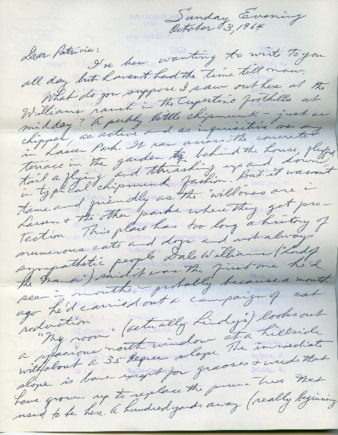 Sunday Evening
October 3, 1964
Dear Patricia:
I've been wanting to write to you
all day but haven't had the time till now.
What do you suppose I saw out here at the
Williams ranch in the Cupertino foothills at
midday? A perky little chipmunk - just as
chipper, as active and as inquisitive as any
in Lassen Park. It ran across the concrete
terrace in the garden behind the house,
tail a flying and thrashing up and down
in typical chipmunk fashion. But it wasn't
tame and friendly as the "willows are in
Lassen & the other parks where they get pro-
tection. This place has too long a history of
numerous cats and dogs and not always
sympathetic people. Dale Williams ("Lord of
the Manor") said it was the first one he'd
seen in months - probably because a month
ago he'd carried out a campaign of cat
reduction.
"My room" (actually Lindy's) looks out
a spacious north window at a hillside
with about a 35 degree slope. The immediate
slope is bare except for grasses & weeds that
have grown up to replace the prune trees that
used to be here. A hundred yards away (really beginning